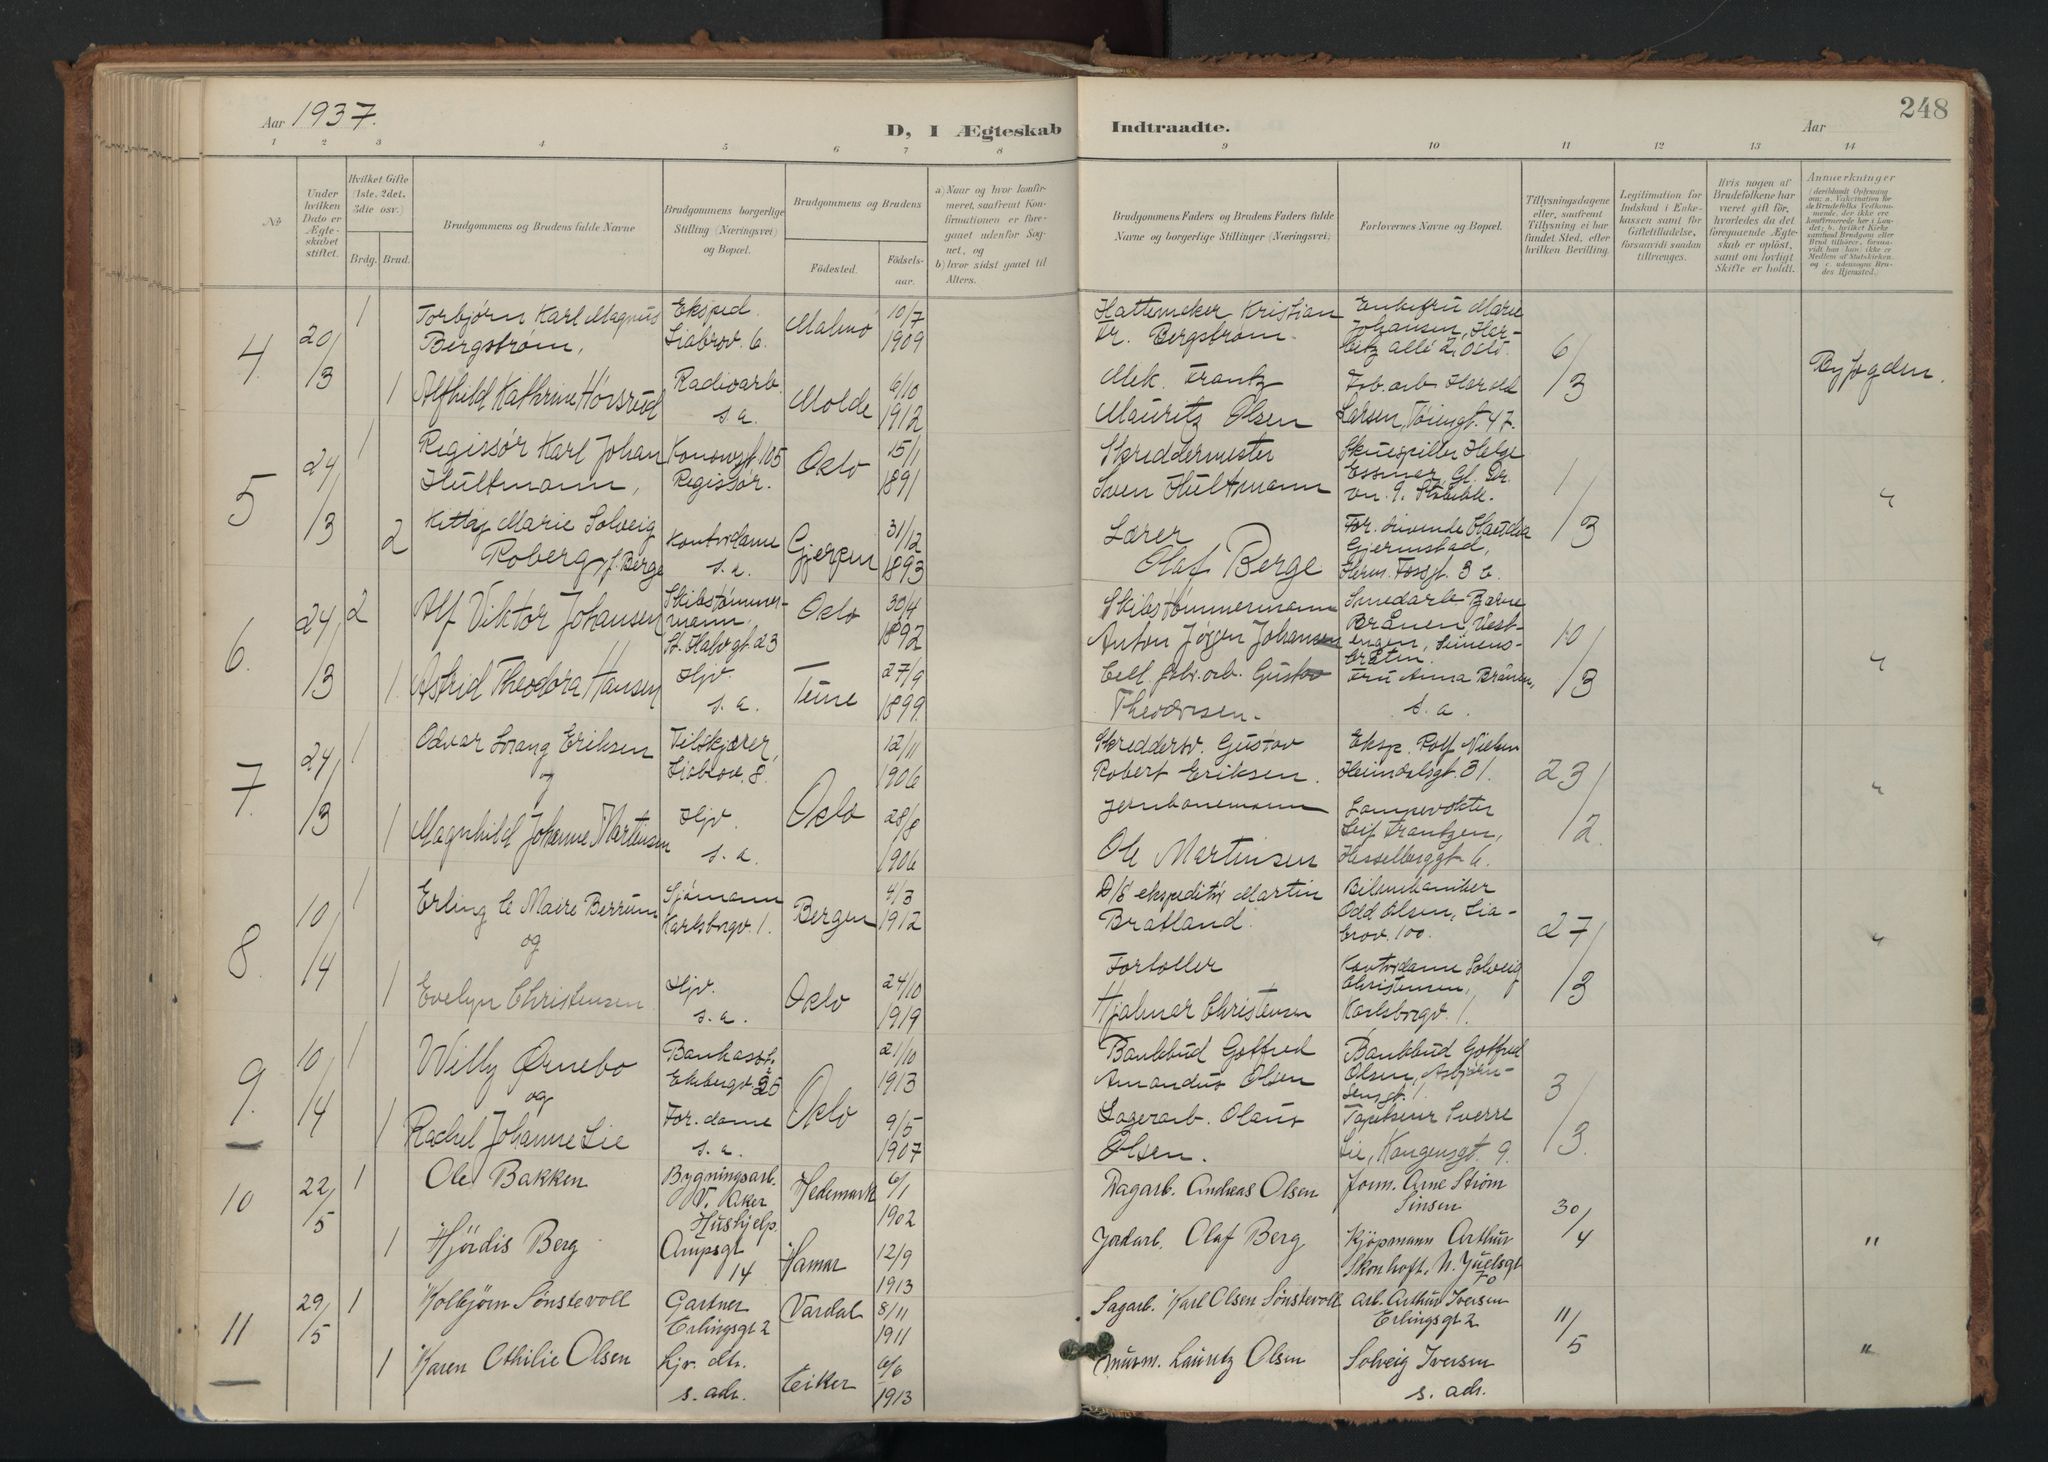 Aar 1937.
D, I Ægteskab Indtraadte.
Aar
248
1 2 3 4 5 6 7 8 9 10 11 12 13 14
No
Under hvilken Dato er Ægteskabet stiftet.
Hvilket Gifte (1ste, 2det, 3die osv.)
Brdg. Brud.
Brudgommens og Brudens fulde Navne
Brudgommens borgerlige Stilling (Næringsvei) og Bopæl.
Brudgommens og Brudens
Fødested.
Fødselsaar.
a) Naar og hvor konfirmeret, saafremt Konfirmationen er foregaaet udenfor Sognet, og
b) hvor sidst gaaet til Alters.
Brudgommens Faders og Brudens Faders fulde Navne og borgerlige Stillinger (Næringsvei)
Forlovernes Navne og Bopæl.
Tillysningsdagene eller, saafremt Tillysning ei har fundet Sted, efter hvilken Bevilling.
Legitimation for Indskud i Enkekassen samt for Giftetilladelse, forsaavidt saadan tiltrænges.
Hvis nogen af Brudefolkene har været gift før, hvorledes da det foregaaende Ægteskab er opløst, samt om lovligt Skifte er holdt.
Anmærkninger
4. 20/3 1 Torbjørn Karl Magnus Eksped. Malmø 10/7 Hattemaker Kristian Enkefru Marie
Bergstrøm, Liabrov. 6. 1909 Fr. Bergstrøm. Johansen, 6/3 Byfogden.
alle 2, Oslo.
1 Alfhild Kathrine Hørsrud Radioarb. Molde 6/10 Mek. Frantz Fab. arb Harald
s. a. 1912 Mauritz Olsen Larsen, 47.
5 24/3 1 Regissør Karl Johan Konowsgt. 105 Oslo 15/1 Skreddermester Skuespiller Helge
Hultmann, Regissør. 1891 Sven Hultmann Essmar, Gl. Dr. 1/3 "
vn. 9. Stabekk.
2 Marie Solveig Kontordame Gjerpen 31/12 Lærer
Roberg, f. Berge s. a. 1893 Olaf Berge Gjermstad,
Herm. Fossgt. 3 b.
6. 24/3 2 Alf Viktor Johansen Skibstømmermann, Oslo 30/4 Skibstømmermann Smedarb Bjarne
St. Halv. gt. 23 1892 Anton Jørgen Johansen Brånen, Vestengen, Simensbråten. 10/3 "
1. Astrid Theodora Hansen Hjv. Teine 27/9 Cell. fabr. arb. Gustav Fru Anna Brånen,
s. a. 1899. Theodorsen. s. a.
7. 24/3 1 Odvar Srang Eriksen Filskjærer, Oslo 12/11 Skreddersv. Gustav Eksp. Rolf Nielsen
og Liabrov. 8. 1906 Robert Eriksen. Heimdalsgt. 31. 23/2. "
1 Magnhild Johanne Martinsen Hjv. 28/8 Jernbanemann Lampevokter
s. a. 1906 Ole Martinsen Leif Frantzen,
Hesselberggt. 6.
8. 10/4 1 Erling C Maere Berrum Sjømann Bergen 4/3 D/S ekspeditør Martin Bilmekaniker
og Karlsborgv. 1. 1912 Bratland. Odd Olsen, Liabrov. 100. 27/3 "
1 Evelyn Christensen Hjv. Oslo 24/10 Fortoller Kontordame Solveig
s. a. 1919 Hjalmar Christensen Christensen,
Karlsborgv. 1.
9. 10/4 1 Willy Ørnebo Bankass. Oslo 21/10 Bankbud Gotfred Bankbud Gotfred
og Ekebergv. 1913 Amandus Olsen Olsen, Asbjørnsensgt. 1. 3/3.
1 Rachel Johanne Lie For. dame 9/5 Lagerarb. Olaus Tapetserer Sverre
s. a. 1907 Olsen. Lie, Kongensgt. 9.
10 22/5 1 Ole Bakken Bygningsarb. Hedemark 6/1 Dagarb. Andreas Olsen form. Arne Strøm
V. Aker 1902 Sinsen 30/4
1 Hjørdis Berg Hushjelp. Hamar 12/9 Jordarb. Olaf Berg Kjøpmann Arthur "
Ampsgt 14 1913 Skonhoft, N. Juelsgt 70
11 29/5 1 Kolbjørn Sønstevoll Gartner Vardal 8/11 Sagarb. Karl Olsen Sønstevoll Arb. Arthur Iversen
Erlingsgt 2 1911 Erlingsgt 2 11/5
1 Karen Othilie Olsen hjv. dtr. Eiker 6/6 murm. Lauritz Olsen Solveig Iversen "
s. adr. 1913 s. adr.